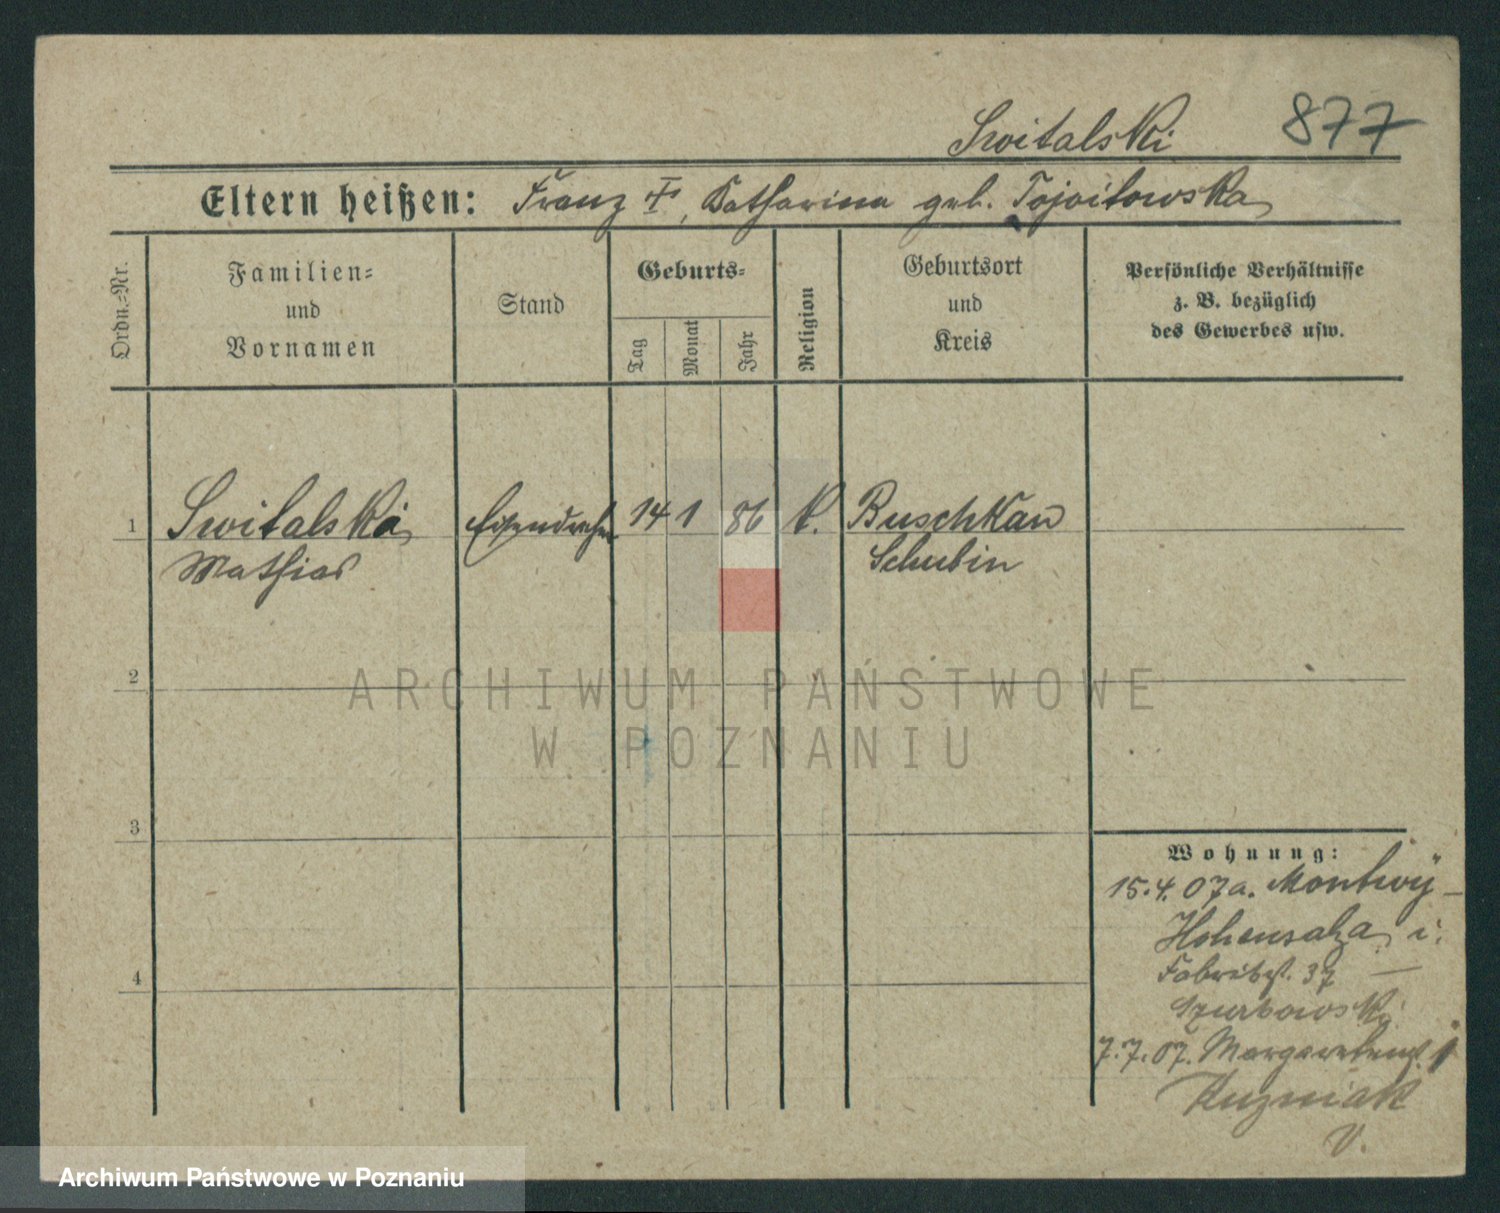 Switalski 877
Eltern heißen: Franz †, Katharina geb.
Ordn.-Nr.
Familien-
und
Vornamen
Stand
Geburts-
Tag
Monat
Jahr
Religion
Geburtsort
und
Kreis
Persönliche Verhältnisse
z. B. bezüglich
des Gewerbes usw.
1 Switalski Eisendreher 14 1 86 k. Buschkau
Mathias Schubin
2
ARCHIWUM PAŃSTWOWE
W POZNANIU
3
4
Wohnung:
15.4.07 a. Montwy -
Hohensalza i.
Fabrikst. 37 —
7.7.07. Margaretenst. 1
Kuzniak
V.
Archiwum Państwowe w Poznaniu